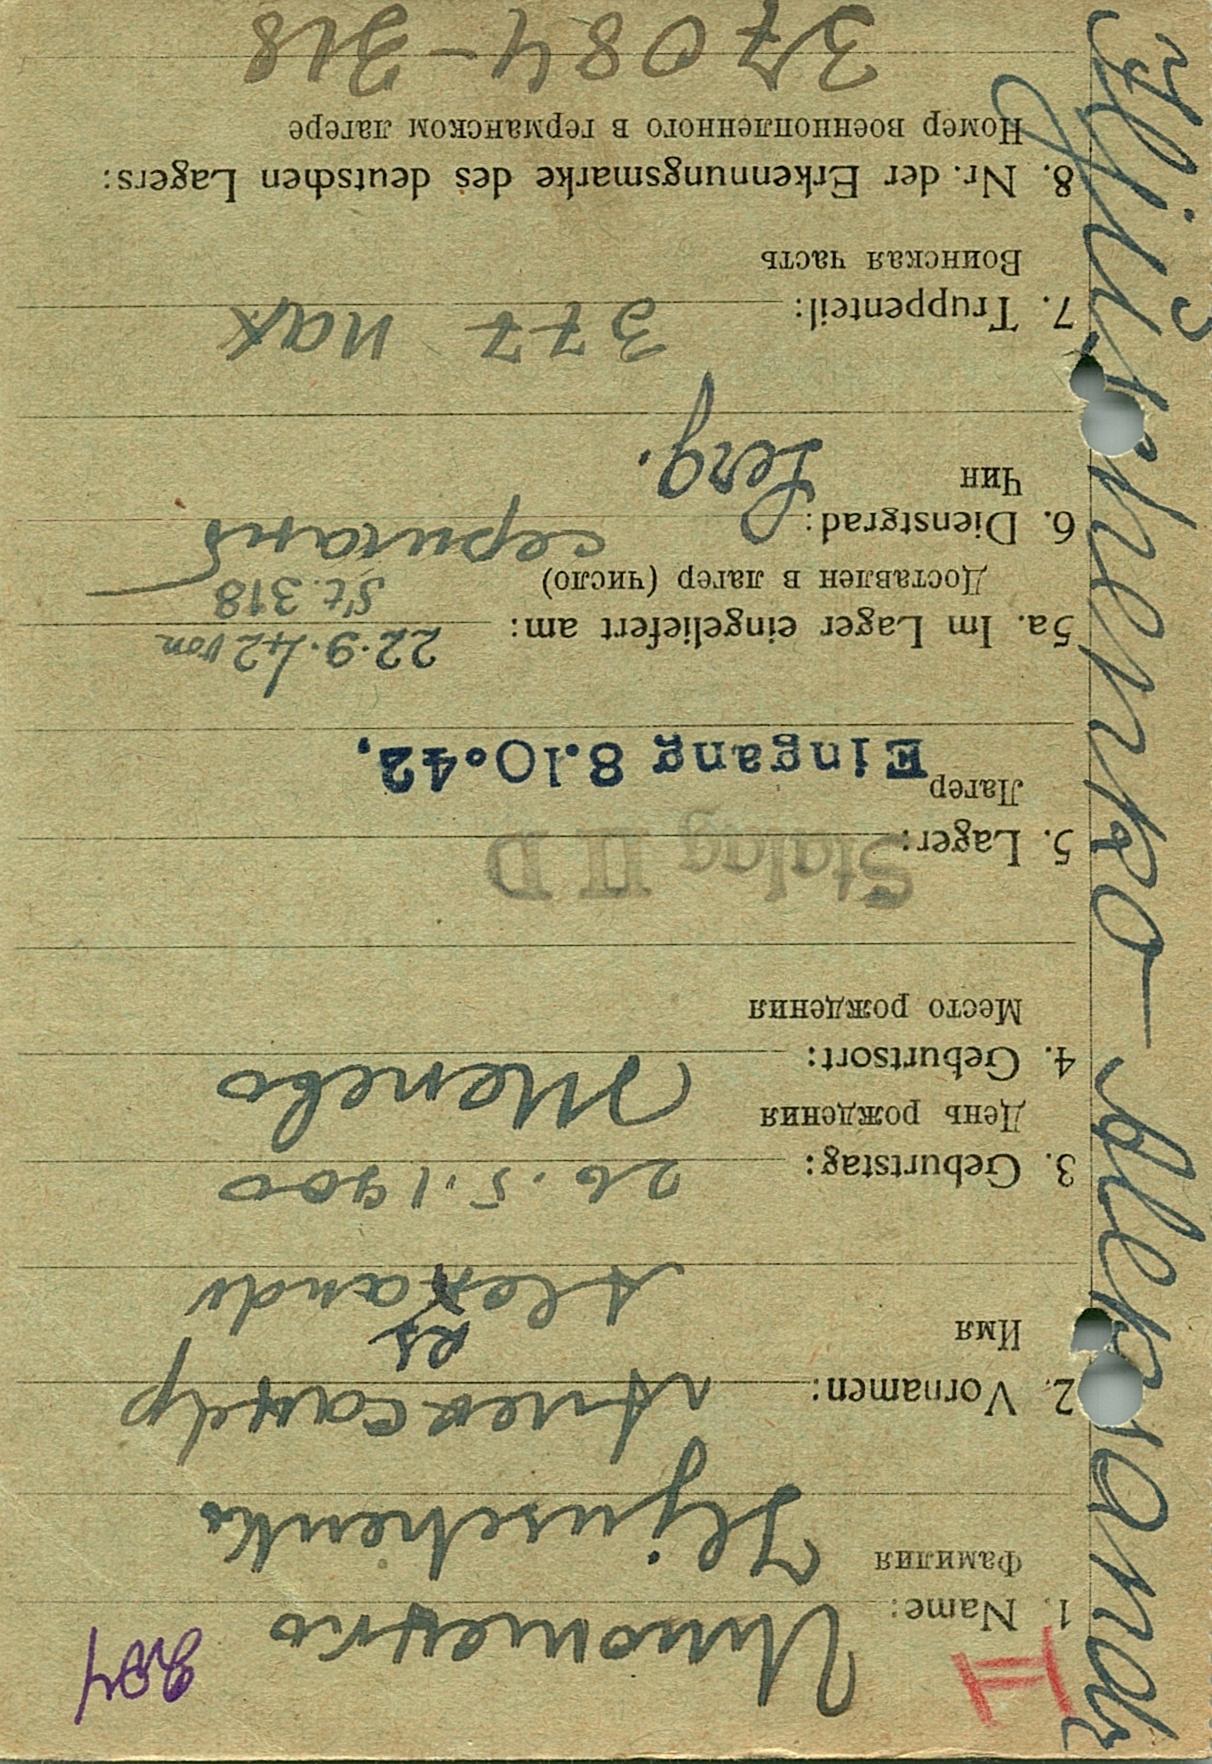 Iljuschenko Aleksandr
II
204
1. Name: Илющенко
Фамилия
Iljuschenko
2. Vornamen: Александр
ks
Имя
Alexandr
3. Geburtstag: 26.5.1900
День рождения
4. Geburtsort:
Место рождения
5. Lager: Stalag II D
Лагер
Eingang 8.10.42.
5a. Im Lager eingeliefert am: 22.9.42 von
Доставлен в лагер (число) St. 318
6. Dienstgrad: сержант
Чин
Serg.
7. Truppenteil: 377
Воинская часть
8. Nr. der Erkennungsmarke des deutschen Lagers:
Номер военнопленного в германском лагере
37084-318